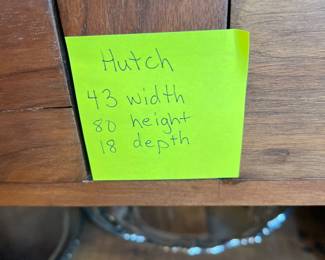 Hutch
43 width
80 height
18 depth